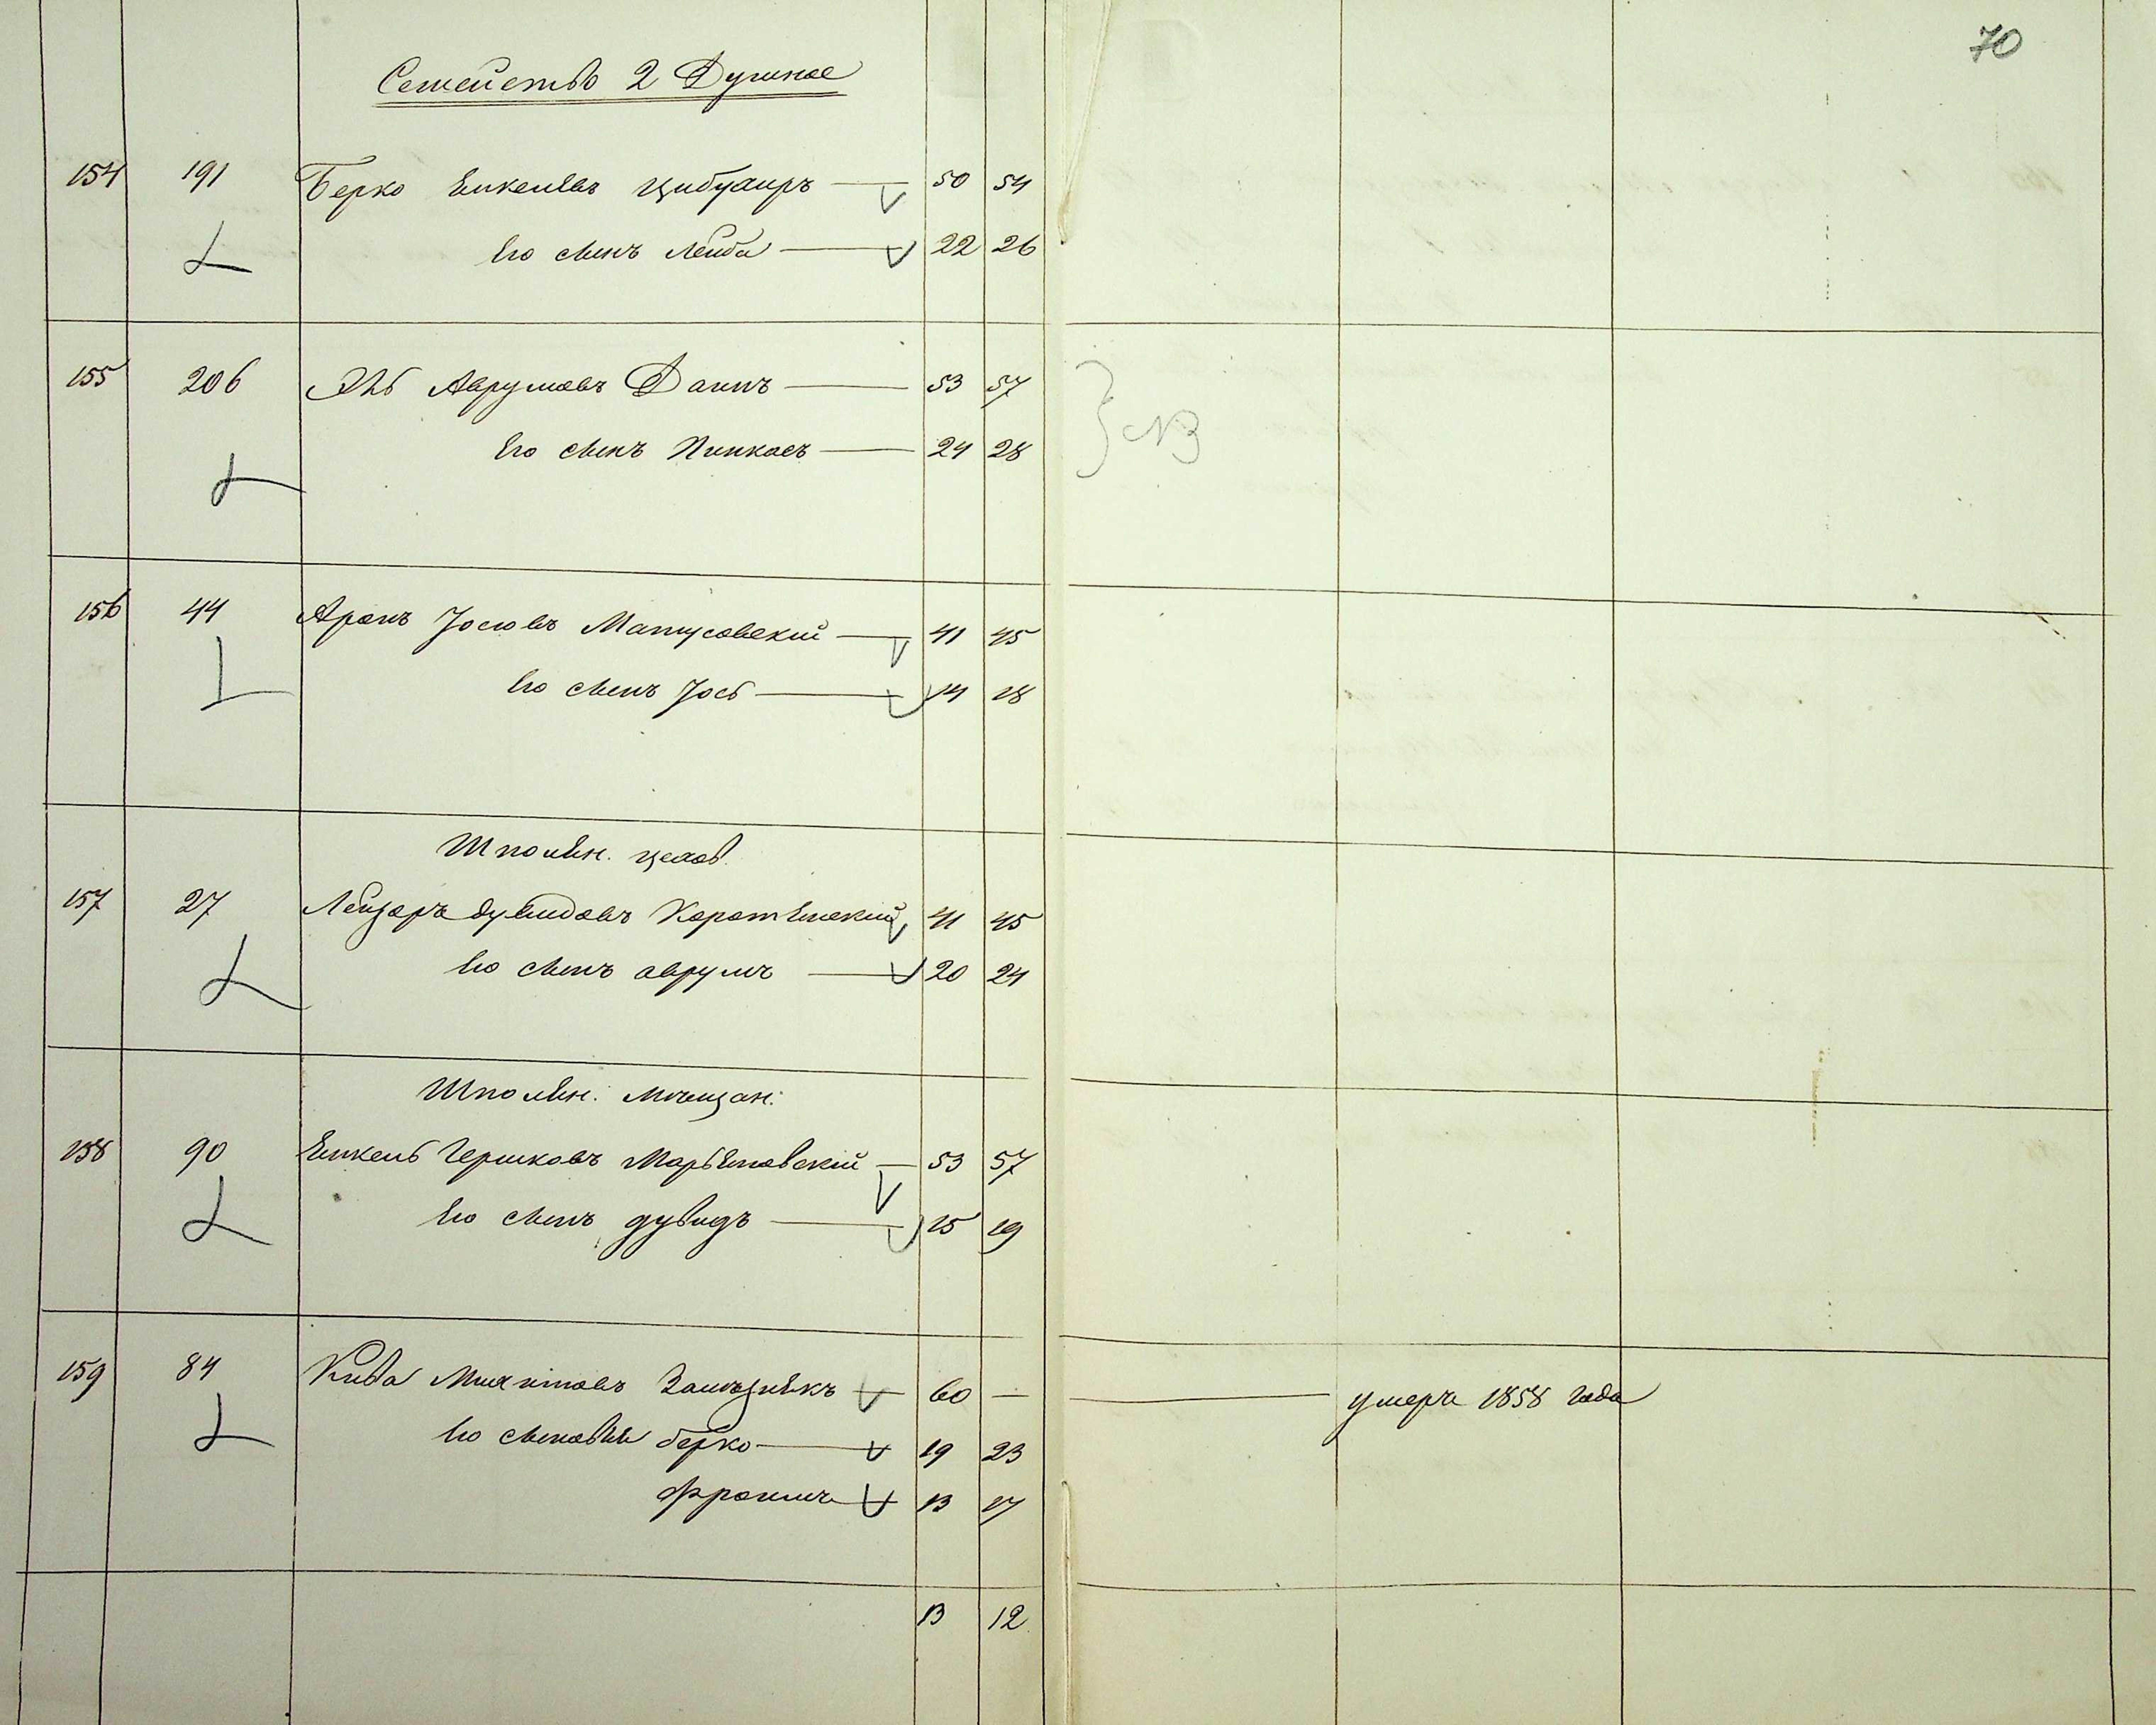 70
Семейство 2 Душное
154 191 Берко Янкелевъ Цибулиръ 50 54
Его сынъ Лейба 22 26
155 206 Эль Аврумовъ Даинъ 53 57
Его сынъ Пинкасъ 24 28
NB
156 44 Аронъ Іосіовъ Матусовскій 41 45
Его сынъ Іось 14 18
Шполян. цехов.
157 27 Лейзоръ Дувидовъ 41 45
Его сынъ Аврумъ 20 24
Шполян. Мѣщан.
158 90 Янкель Гершковъ Марьяновскій 53 57
Его сынъ Дувидъ 15 19
159 84 Кива 60 — умеръ 1858 года
Его сыновья Берко 19 23
Фроимъ 13 17
13 12